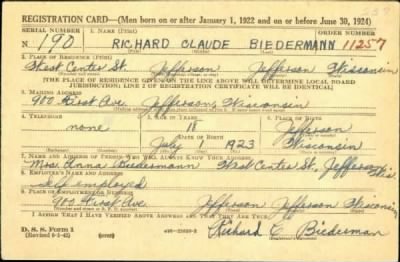 REGISTRATION CARD—(Men born on or after January 1, 1922 and on or before June 30, 1924)
SERIAL NUMBER 1. NAME (Print) ORDER NUMBER
N 190 RICHARD CLAUDE BIEDERMANN 11257
(First) (Middle) (Last)
2. PLACE OF RESIDENCE (Print)
West Center St. Jefferson Jefferson Wisconsin
(Number and street) (Town, township, village, or city) (County) (State)
[THE PLACE OF RESIDENCE GIVEN ON THE LINE ABOVE WILL DETERMINE LOCAL BOARD
JURISDICTION; LINE 2 OF REGISTRATION CERTIFICATE WILL BE IDENTICAL]
3. MAILING ADDRESS
900 First Ave. Jefferson, Wisconsin
4. TELEPHONE 5. AGE IN YEARS 6. PLACE OF BIRTH
none 18 Jefferson
DATE OF BIRTH
July 1 1923 Wisconsin
7. NAME AND ADDRESS OF PERSON WHO WILL ALWAYS KNOW YOUR ADDRESS
Mrs. Anna Biedermann West Center St., Jefferson, Wis.
8. EMPLOYER'S NAME AND ADDRESS
Self employed
9. PLACE OF EMPLOYMENT OR BUSINESS
900 First Ave Jefferson Jefferson Wisconsin
I AFFIRM THAT I HAVE VERIFIED ABOVE ANSWERS AND THAT THEY ARE TRUE.
D. S. S. Form 1
(Revised 6-9-41) (over)
Richard C. Biederman